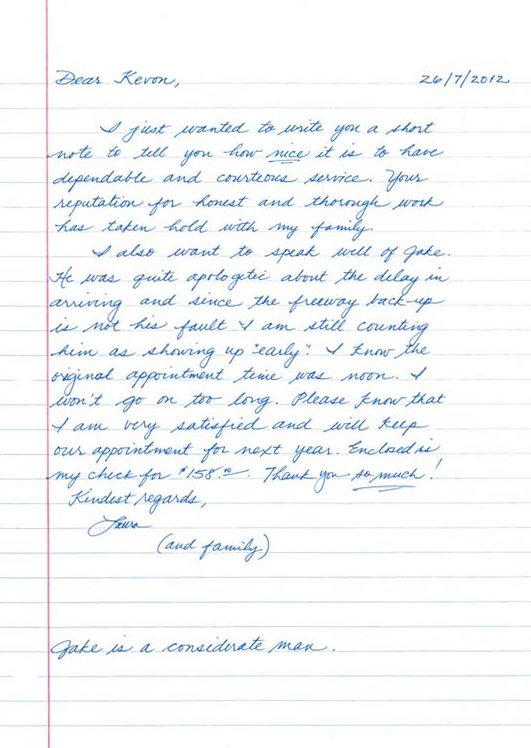 Dear Kevon, 26/7/2012
I just wanted to write you a short
note to tell you how nice it is to have
dependable and courteous service. Your
reputation for honest and thorough work
has taken hold with my family.
I also want to speak well of Jake.
He was quite apologetic about the delay in
arriving and since the freeway back-up
is not his fault I am still counting
him as showing up "early". I know the
original appointment time was noon. I
won't go on too long. Please know that
I am very satisfied and will keep
our appointment for next year. Enclosed is
my check for $158.00. Thank you so much!
Kindest regards,
Laura
(and family)
Jake is a considerate man.